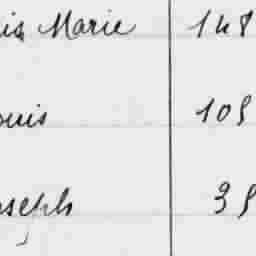 is Marie 148
ouis 105
oseph 39